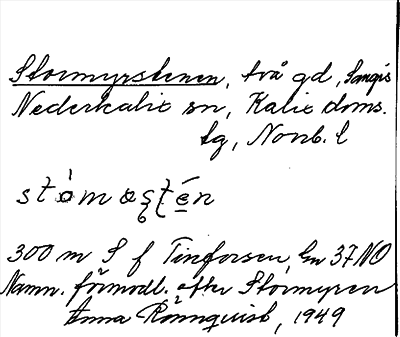 Stormyrstenen, två gd, Sangis
Nederkalix sn, Kalix doms.
tg, Norrb. l
300 m S f Tinforsen, 37NO
Namn. förmodl. efter Stormyren
Anna Rönnquist, 1949